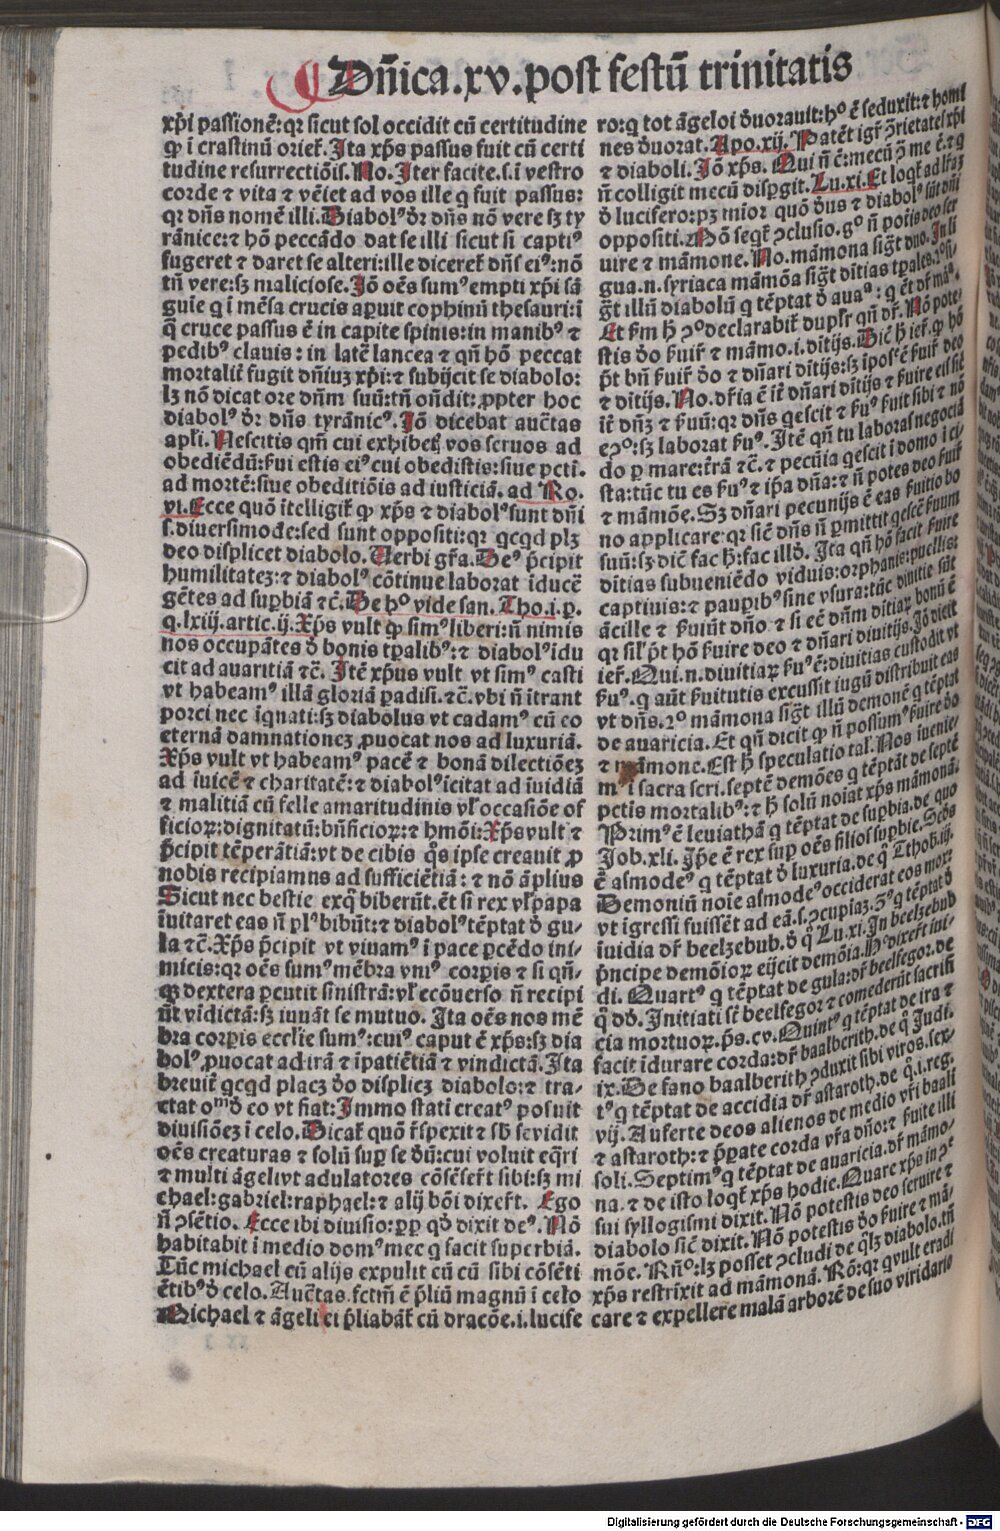 Dñica.xv.post festũ trinitatis
xp̃i passionẽ: qꝛ sicut sol occidit cũ certitudine
ꝙ i crastinũ orieť. Ita xp̃s passus fuit cũ certi
tudine resurrectiõis. No. Iter facite.s.i vestro
corde ⁊ vita ⁊ vẽiet ad vos ille q fuit passus:
qꝛ dñs nomẽ illi. Diabolꝰ dꝛ dñs nõ vere sꝫ ty
rãnice: ⁊ hõ peccãdo dat se illi sicut si captiꝰ
fugeret ⁊ daret se alteri: ille dicereť dñs eiꝰ: nõ
tñ vere: sꝫ maliciose. Iõ oẽs sumꝰ empti xp̃i sã
guie q i mẽsa crucis apuit cophinũ thesauri: i
q̃ cruce passus ẽ in capite spinis: in manibꝰ ⁊
pedibꝰ clauis: in latẽ lancea ⁊ qñ hõ peccat
mortaliť fugit dñiuꝫ xp̃i: ⁊ subijcit se diabolo:
lꝫ nõ dicat ore dñm suũ: tñ oñdit: ꝓpter hoc
diabolꝰ dꝛ dñs tyrãnicꝰ. Iõ dicebat auc̃tas
apl̃i. Nescitis qm̃ cui exhibetꝭ vos seruos ad
obediẽdũ: ẜui estis eiꝰ cui obedistis: siue pcti.
ad mortẽ: siue obeditiõis ad iusticiã. ad Ro.
vi. Ecce quõ itelligiť ꝙ xp̃s ⁊ diabolꝰ sunt dñi
s. diuersimode: sed sunt oppositi: qꝛ qcqd plꝫ
deo displicet diabolo. Uerbi gr̃a. Deꝰ p̃cipit
humilitateꝫ: ⁊ diabolꝰ cõtinue laborat iducẽ
gẽtes ad supbiã ⁊c̃. De hoꝰ vide san. Tho.i.p.
q.lxiij.artic.ij. Xp̃s vult ꝙ simꝰ liberi: ñ nimis
nos occupãtes ꝺ bonis tp̃alibꝰ: ⁊ diabolꝰ idu
cit ad auaritiã ⁊c̃. Itẽ xp̃us vult vt simꝰ casti
vt habeamꝰ illã gloriã padisi. ⁊c̃. vbi ñ itrant
porci nec iq̃nati: sꝫ diabolus vt cadamꝰ cũ eo
eternã damnationeꝫ ꝓuocat nos ad luxuriã.
Xp̃s vult vt habeamꝰ pacẽ ⁊ bonã dilectiõeꝫ
ad iuicẽ ⁊ charitatẽ: ⁊ diabolꝰ icitat ad iuidiã
⁊ malitiã cũ felle amaritudinis vľ occasiõe of
ficioꝝ: dignitatũ: bñficioꝝ: ⁊ hmõi: Xp̃s vult ⁊
p̃cipit tẽperãtiã: vt de cibis q̃s ipse creauit ꝓ
nobis recipiamus ad sufficiẽtiã: ⁊ nõ ãplius
Sicut nec bestie exq̃ biberũt. ẽt si rex vľ papa
iuitaret eas ñ plꝰ bibũt: ⁊ diabolꝰ tẽptat ꝺ gu-
la ⁊c̃. Xp̃s p̃cipit vt viuamꝰ i pace pcẽdo ini-
micis: qꝛ oẽs sumꝰ mẽbra vniꝰ corpis ⁊ si qñ-
qꝫ dextera pcutit sinistrã: vľ ecõuerso ñ recipi
ũt vidictã: sꝫ iuuãt se mutuo. Ita oẽs nos mẽ
bra corpis eccľie sumꝰ: cuiꝰ caput ẽ xp̃s: sꝫ dia
bolꝰ ꝓuocat ad irã ⁊ ipatiẽtiã ⁊ vindictã. Ita
breuiť qcqd placꝫ ꝺo displicꝫ diabolo: ⁊ tra-
ctat oᵐꝺ eo vt fiat: Immo stati creatꝰ posuit
diuisiõeꝫ i celo. Dicať quõ r̃spexit ⁊ sb̃ se vidit
oẽs creaturas ⁊ solũ sup se ꝺũ: cui voluit eq̃ri
⁊ multi ãgeli vt adulatores cõsẽseřt sibi: sꝫ mi
chael: gabriel: raphael: ⁊ alij bõi dixeřt. Ego
ñ ↄsẽtio. Ecce ibi diuisio: ꝓp qꝺ dixit deꝰ. Nõ
habitabit i medio domꝰ mee q facit superbiã.
Tũc michael cũ alijs expulit eũ cũ sibi cõsẽti
ẽtibꝰ ꝺ celo. Auc̃tas. fctm̃ ẽ p̃liũ magnũ i celo
Michael ⁊ ãgeli ei p̃liabãť cũ dracõe.i.lucife
ro: q tot ãgeloꝝ ꝺuorauit: hoꝰ ẽ seduxit: ⁊ homi
nes ꝺuorat. Apo.xij. Patẽt igř ↄ̃rietates xp̃i
⁊ diaboli. Iõ xp̃s. Qui ñ ẽ: mecũ ↄ̃ me ẽ: ⁊ q
ñ colligit mecũ dispgit. Lu.xi. Et loqť ad lr̃aꝫ
ꝺ lucifero: pꝫ mior quõ ꝺus ⁊ diabolꝰ sũt dñi
oppositi. Nõ seqť ↄclusio. gᵒ ñ poťis deo ser
uire ⁊ mãmone. No. mãmona sig̃t duo. In li
gua.n.syriaca mãmõa sig̃t ditias tp̃ales.
g̃t illũ diabolũ q tẽptat ꝺ auaꝰ: q ẽt dř mãꝰ.
Et ẜm h̃ ↄᵒdeclarabiť dupľr qñ dř. Nõ pote-
stis ꝺo ẜuiř ⁊ mãmo.i.ditijs. Dic̃ h̃ ieř. ꝙ hõ
p̃t bñ ẜuiř ꝺo ⁊ dñari ditijs: sꝫ iposꝰẽ ẜuiř deo
⁊ ditijs. No. dřia ẽ iř dñari ditijs ⁊ ẜuire eis sic̃
iř dñꝫ ⁊ ẜuũ: qꝛ dñs gescit ⁊ ẜuꝰ ẜuit sibi ⁊ nõ
eↄᵒ: sꝫ laborat ẜuꝰ. Itẽ qñ tu laboras negociã
do p mare: ťrã ⁊c̃. ⁊ pecũia gescit i domo i ci-
sta: tũc tu es ẜuꝰ ⁊ ip̃a dñа: ⁊ ñ potes deo ẜuiř
⁊ mãmõe. Sꝫ dñari pecunijs ẽ eas ẜuitio bo
no applicare: qꝛ sic̃ dñs ñ pmittit gescẽ ẜuum
suũ: sꝫ dic̃ fac h̃: fac illꝺ. Ita qñ hõ facit ẜuire
ditias subueniẽdo viduis: orphanis: puellis:
captiuis: ⁊ paupibꝰ sine vsura: tũc diuitie sũt
ãcille ⁊ ẜuiũt dño ⁊ si eẽ dñm ditiaꝝ bonũ ẽ
qꝛ siľ p̃t hõ ẜuire deo ⁊ dñari diuitijs. Iõ dicit
ieř. Qui.n.diuitiaꝝ ẜuꝰ ẽ: diuitias custodit vt
ẜuꝰ. q aũt ẜuitutis excussit iugũ distribuit eas
vt dñs. 2ᵒ mãmona sig̃t illũ demonẽ q tẽptat
de auaricia. Et qñ dicit ꝙ ñ possumꝰ ẜuire ꝺo
⁊ mãmone. Est h̃ speculatio tal̃. Nos iuenie-
mꝰ i sacra scri. septẽ demões q tẽptãt de septẽ
pctis mortalibꝰ: ⁊ h̃ solũ noiat xp̃s mãmonã.
Primꝰ ẽ leuiathã q tẽptat de supbia. de quo
Iob.xli. Ip̃e ẽ rex sup oẽs filios supbie. Scꝺs
ẽ asmodeꝰ q tẽptat ꝺ luxuria. de q̃ Thob.iij.
Demoniũ noie asmodeꝰ occiderat eos mox
vt igressi fuissẽt ad eã. s. ↄcupiaꝫ. 3ꝰ q tẽptat ꝺ
iuidia dř beelzebub. ꝺ q̃ Lu.xi. In beelzebub
p̃ncipe demõioꝝ eijcit demõia. Hᵒ dixeřt ini-
di. Quartꝰ q tẽptat de gula: dř beelfegor. de
q̃ ꝺꝺ. Initiati st̃ beelfegor ⁊ comederũt sacrifi
cia mortuoꝝ. p̃s.cv. Quintꝰ q tẽptat de ira ⁊
facit idurare corda: dř baalberith. de q̃ Iudi.
ix. De fano baalberith ↄduxit sibi viros. sex-
tꝰ q tẽptat de accidia dř astaroth. de q̃.i.reg.
vij. Auferte deos alienos de medio vr̃i baali
⁊ astaroth: ⁊ p̃pate corda vr̃a dño: ⁊ ẜuite illi
soli. Septimꝰ q tẽptat de auaricia. dř mãmo-
na. ⁊ de isto loqť xp̃s hodie. Quare xp̃s in ↄᵉ
sui syllogismi dixit. Nõ potestis deo seruire ⁊
diabolo sic̃ dixit. Nõ potestis ꝺo ẜuire ⁊ mã-
mõe. Rñᵒ: lꝫ posset ↄcludi de q̃lꝫ diabolo. tñ
xp̃s restrixit ad mãmonã. Rõ: qꝛ qvult eradi
care ⁊ expellere malã arborẽ de suo viridario
Digitalisierung gefördert durch die Deutsche Forschungsgemeinschaft - DFG